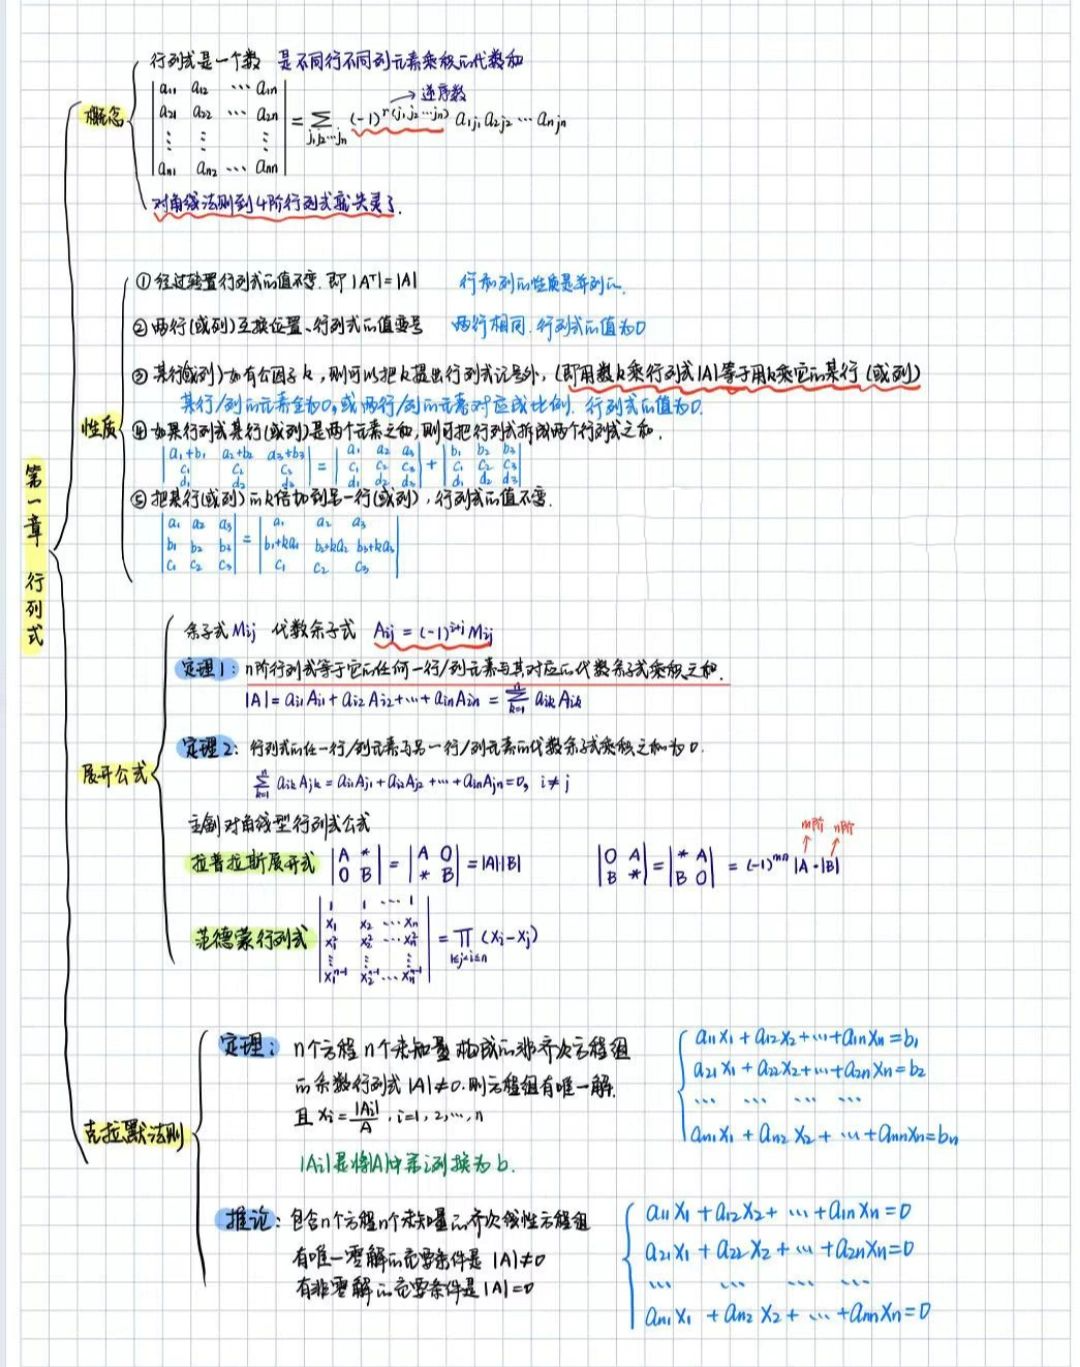 第一章 行列式
概念
行列式是一个数 是不同行不同列元素乘积的代数和
| a₁₁ a₁₂ ⋯ a₁ₙ |
| a₂₁ a₂₂ ⋯ a₂ₙ | = ∑_{j₁j₂⋯jₙ} (-1)^{τ(j₁j₂⋯jₙ)} a₁j₁ a₂j₂ ⋯ aₙjₙ → 逆序数
| ⋮ ⋮ ⋮ |
| aₙ₁ aₙ₂ ⋯ aₙₙ |
对角线法则到4阶行列式就失灵了.
性质
① 经过转置行列式的值不变. 即 |Aᵀ|=|A| 行和列的性质是并列的.
② 两行(或列)互换位置、行列式的值变号 两行相同. 行列式的值为0
③ 某行(或列)如有公因子k, 则可以把k提出行列式记号外, (即用数k乘行列式|A|等于用k乘它的某行(或列))
某行/列的元素全为0, 或两行/列的元素对应成比例. 行列式的值为0.
④ 如果行列式某行(或列)是两个元素之和, 则可把行列式拆成两个行列式之和.
| a₁+b₁ a₂+b₂ a₃+b₃ | | a₁ a₂ a₃ | | b₁ b₂ b₃ |
| c₁ c₂ c₃ | = | c₁ c₂ c₃ | + | c₁ c₂ c₃ |
| d₁ d₂ d₃ | | d₁ d₂ d₃ | | d₁ d₂ d₃ |
⑤ 把某行(或列)的k倍加到另一行(或列), 行列式的值不变.
| a₁ a₂ a₃ | | a₁ a₂ a₃ |
| b₁ b₂ b₃ | = | b₁+ka₁ b₂+ka₂ b₃+ka₃ |
| c₁ c₂ c₃ | | c₁ c₂ c₃ |
展开公式
余子式 Mij 代数余子式 Aij = (-1)^{i+j} Mij
定理1: n阶行列式等于它的任何一行/列元素与其对应的代数余子式乘积之和.
|A| = ai₁Ai₁ + ai₂Ai₂ + ⋯ + ainAin = ∑_{k=1}^{n} aikAik
定理2: 行列式的任一行/列元素与另一行/列元素的代数余子式乘积之和为0.
∑_{k=1}^{n} aikAjk = ai₁Aj₁ + ai₂Aj₂ + ⋯ + ainAjn = 0, i≠j
主副对角线型行列式公式
m阶 n阶
拉普拉斯展开式 | A * ; O B | = | A O ; * B | = |A||B| | O A ; B * | = | * A ; B O | = (-1)^{mn} |A·|B|
范德蒙行列式
| 1 1 ⋯ 1 |
| x₁ x₂ ⋯ xₙ |
| x₁² x₂² ⋯ xₙ² | = ∏_{1≤j<i≤n} (xi-xj)
| ⋮ ⋮ ⋮ |
| x₁ⁿ⁻¹ x₂ⁿ⁻¹ ⋯ xₙⁿ⁻¹ |
克拉默法则
定理: n个方程n个未知量构成的非齐次方程组
的系数行列式 |A|≠0. 则方程组有唯一解.
且 xi = |Ai|/A , i=1, 2, ⋯, n
|Ai|是将|A|中第i列换为b.
a₁₁x₁ + a₁₂x₂ + ⋯ + a₁ₙxₙ = b₁
a₂₁x₁ + a₂₂x₂ + ⋯ + a₂ₙxₙ = b₂
⋯ ⋯ ⋯ ⋯
aₙ₁x₁ + aₙ₂x₂ + ⋯ + aₙₙxₙ = bₙ
推论: 包含n个方程n个未知量的齐次线性方程组
有唯一零解的充要条件是 |A|≠0
有非零解的充要条件是 |A|=0
a₁₁x₁ + a₁₂x₂ + ⋯ + a₁ₙxₙ = 0
a₂₁x₁ + a₂₂x₂ + ⋯ + a₂ₙxₙ = 0
⋯ ⋯ ⋯ ⋯
aₙ₁x₁ + aₙ₂x₂ + ⋯ + aₙₙxₙ = 0